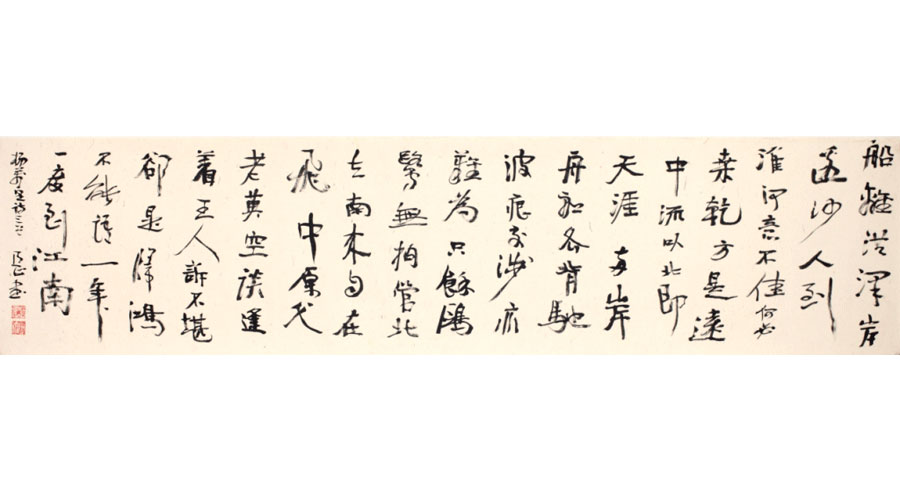 船離洪澤岸
邊沙人到
淮河意不佳何必
桑乾方是遠
中流以北即
天涯兩岸
舟船各背馳
波痕交涉亦
難為只餘鷗
鷺無拘管北
去南來自在
飛中原父
老莫空談逢
着王人訴不堪
卻是歸鴻
不能語一年
一度到江南
楊萬里詩三首 書